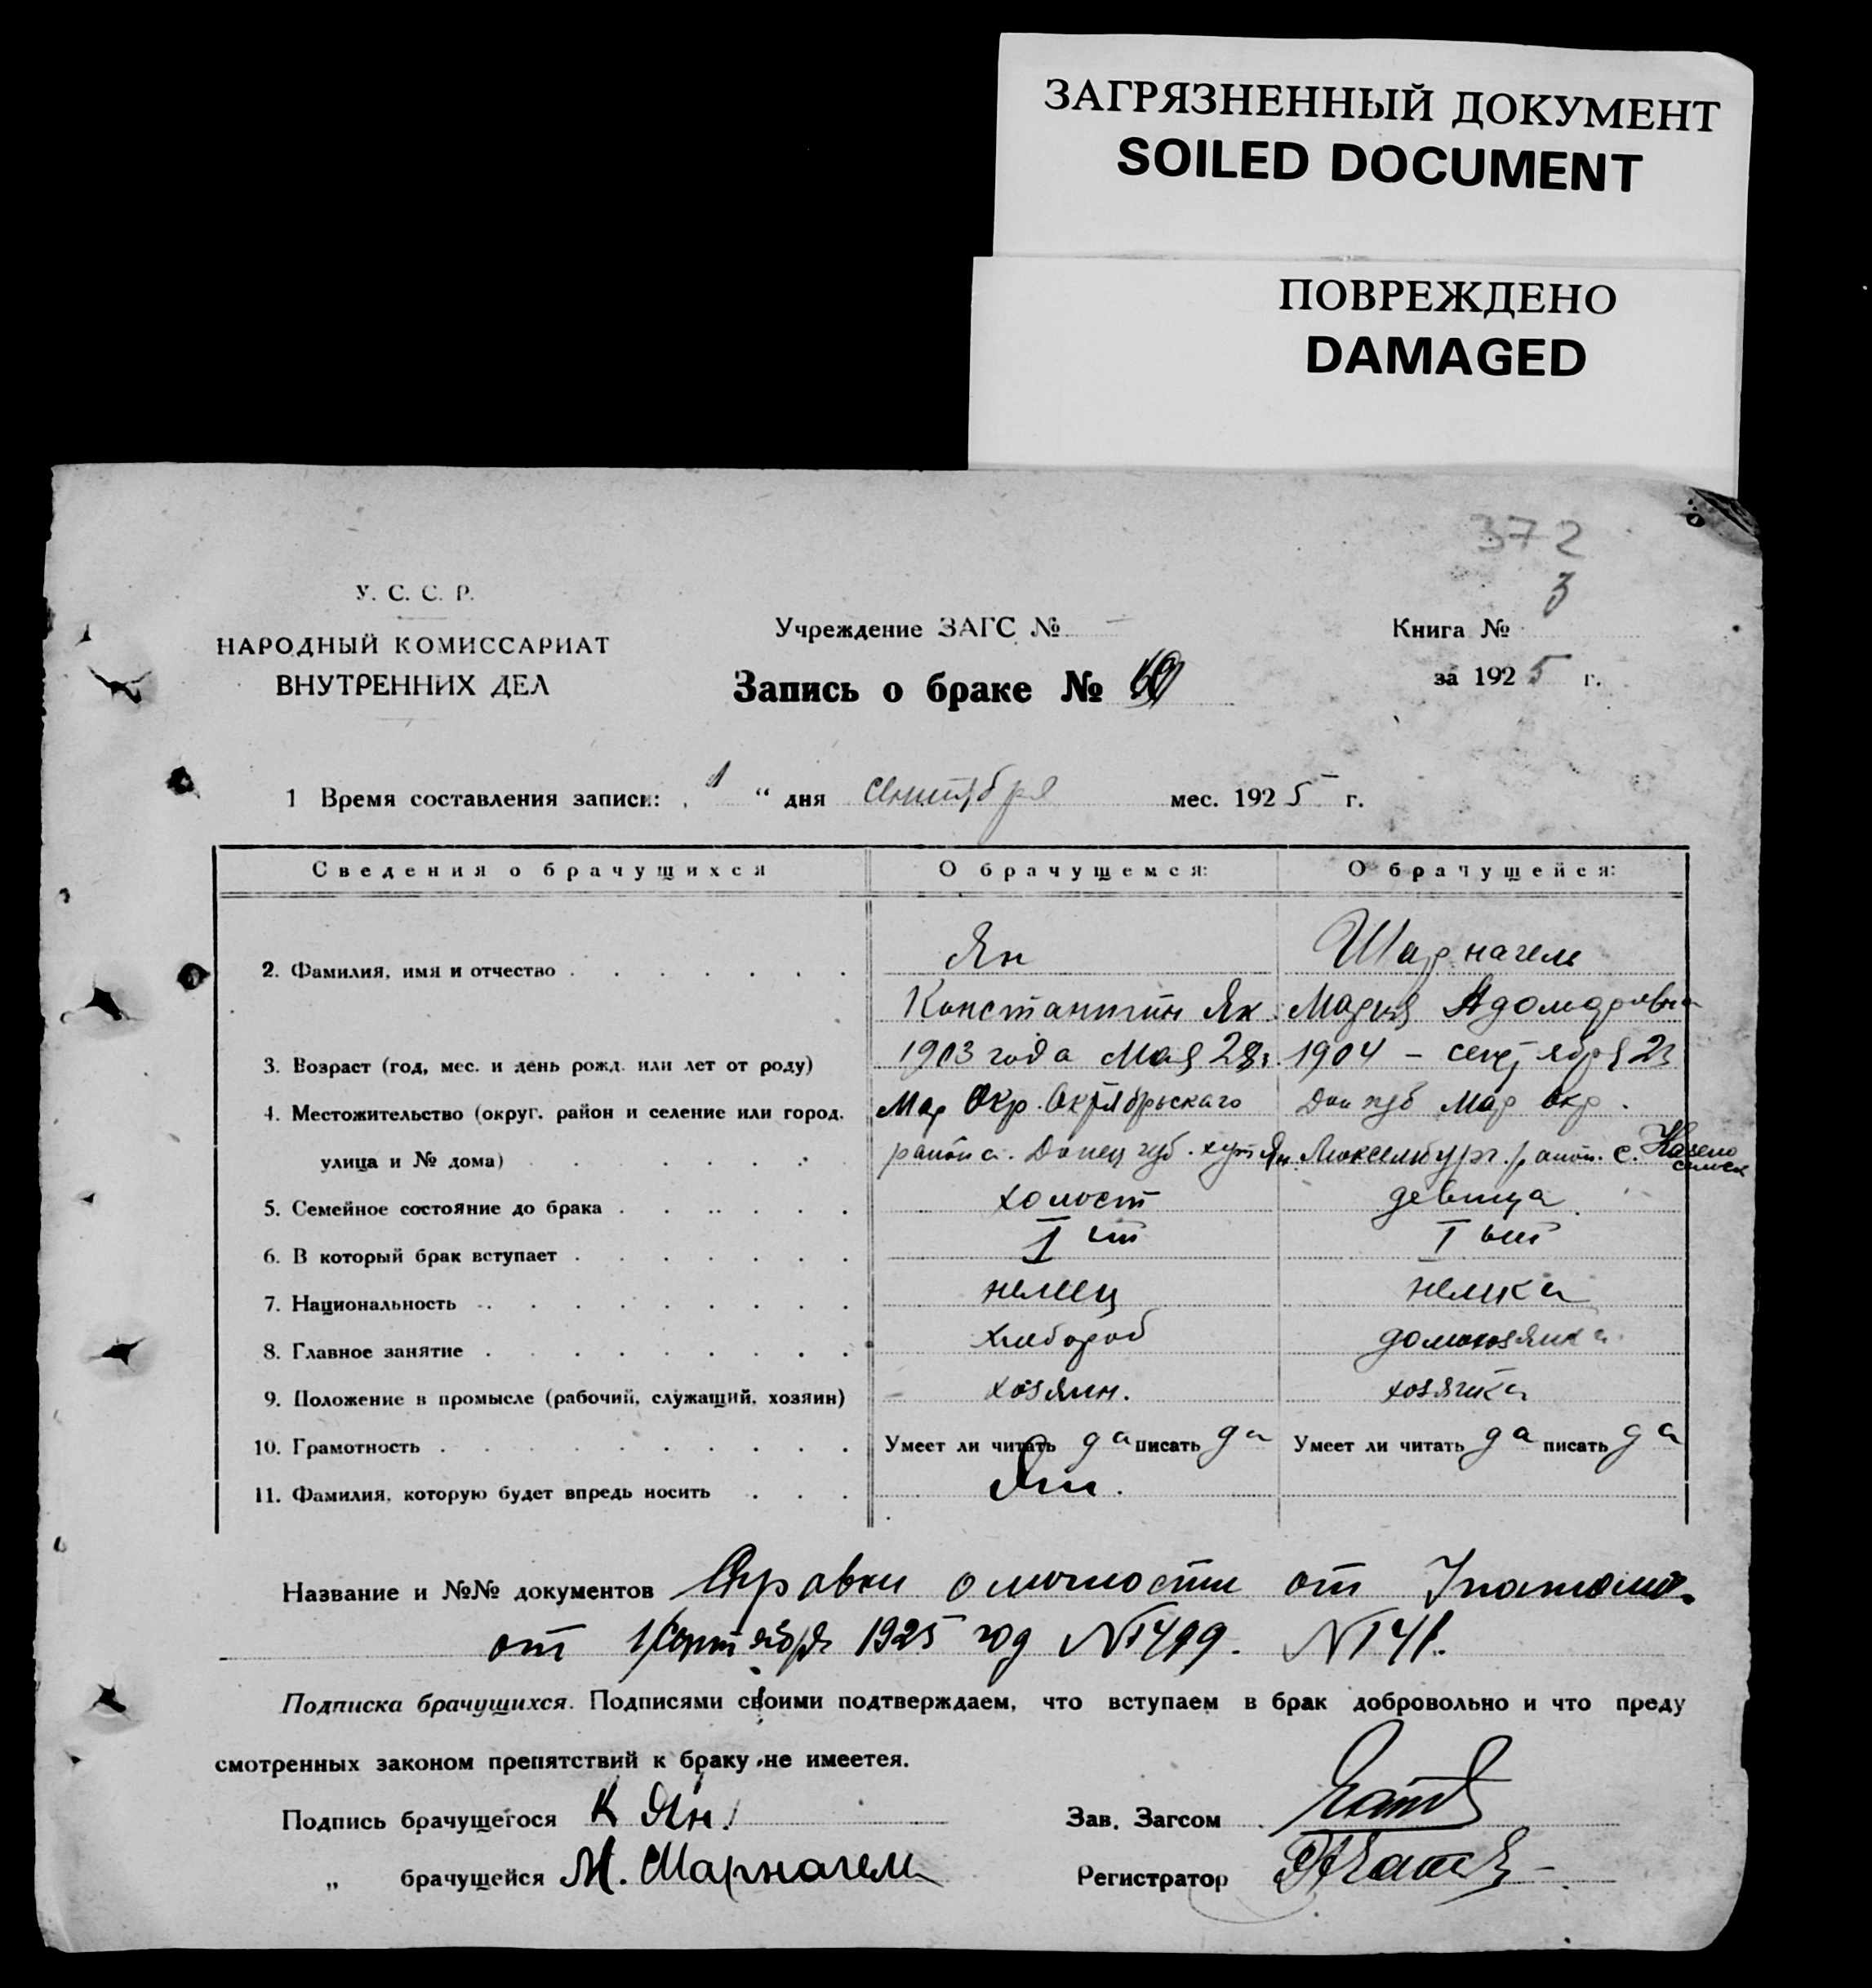 ЗАГРЯЗНЕННЫЙ ДОКУМЕНТ
SOILED DOCUMENT
ПОВРЕЖДЕНО
DAMAGED
372
3
У. С. С. Р.
НАРОДНЫЙ КОМИССАРИАТ
ВНУТРЕННИХ ДЕЛ
Учреждение ЗАГС №
Запись о браке №
Книга №
за 1925 г.
1 Время составления записи: „1“ дня сентября мес. 1925 г.
Сведения о брачущихся О брачущемся: О брачущейся:
2. Фамилия, имя и отчество Ян Шарнагель
Константин Як. Мария Адольфовна
3. Возраст (год, мес. и день рожд. или лет от роду) 1903 года Мая 28 1904 – сентября 23
4. Местожительство (округ, район и селение или город, Мар Окр. Октябрьскаго Дон губ Мар Окр.
улица и № дома) района. Донец губ. хут Ян. Люксембург. район. с.
5. Семейное состояние до брака холост девица
6. В который брак вступает I ый I ый
7. Национальность немец немка
8. Главное занятие хлебороб домохозяйка
9. Положение в промысле (рабочий, служащий, хозяин) хозяин. хозяйка
10. Грамотность Умеет ли читать да писать да Умеет ли читать да писать да
11. Фамилия, которую будет впредь носить Ян.
Название и №№ документов Справки о личности от
от 1 сентября 1925 год № 1499. № 141.
Подписка брачущихся. Подписями своими подтверждаем, что вступаем в брак добровольно и что преду
смотренных законом препятствий к браку не имеетея.
Подпись брачущегося К Ян. Зав. Загсом
„ брачущейся М. Шарнагель Регистратор